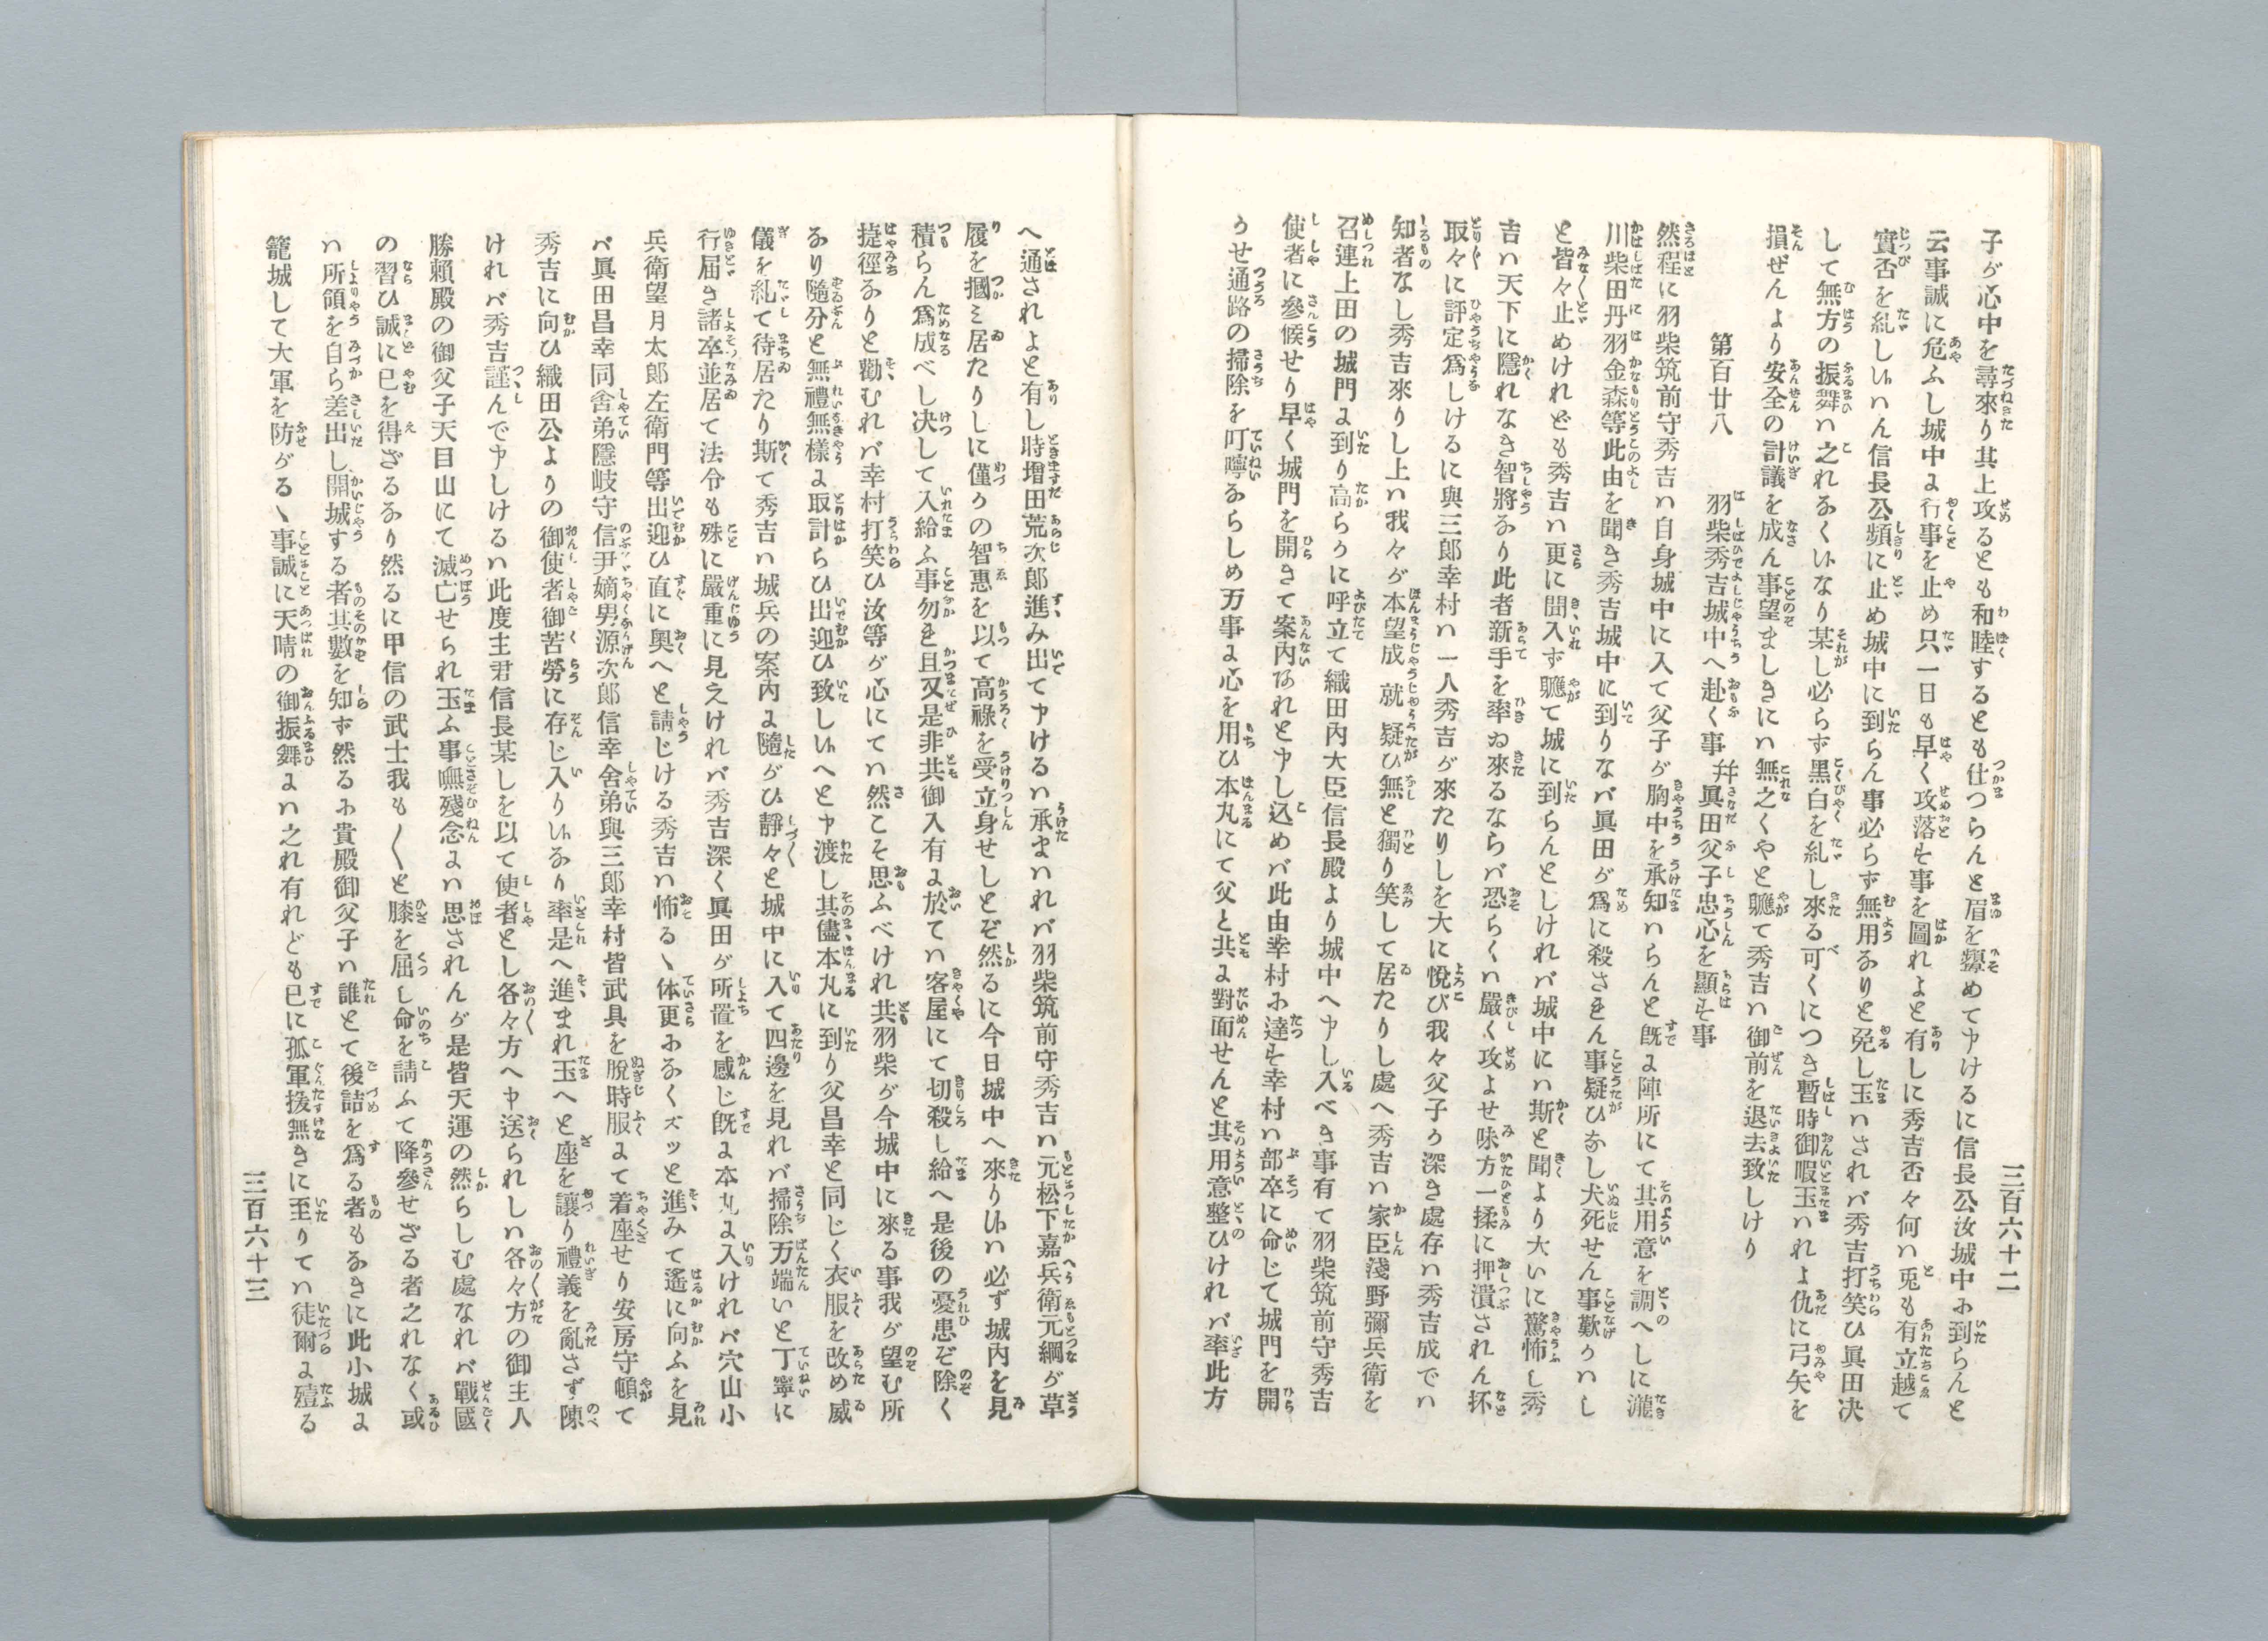 三百六十二
子が心中を尋來り其上攻るとも和睦するとも仕つらんと眉を顰めて申けるに信長公汝城中に到らんと
云事誠に危ふし城中に行事を止め只一日も早く攻落す事を圖れよと有しに秀吉否々何ハ兎も有立越て
實否を糺し候ハん信長公頻に止め城中に到らん事必らず無用なりと免し玉ハされバ秀吉打笑ひ眞田决
して無方の振舞ハ之れなく候なり某し必らず黑白を糺し來る可くにつき暫時御暇玉ハれよ仇に弓矢を
損ぜんより安全の計議を成ん事望ましきにハ無之くやと軈て秀吉ハ御前を退去致しけり
第百廿八 羽柴秀吉城中へ赴く事幷眞田父子忠心を顯はす事
然程に羽柴筑前守秀吉ハ自身城中に入て父子が胸中を承知ハらんと旣に陣所にて其用意を調へしに瀧
川柴田丹羽金森等此由を聞き秀吉城中に到りなバ眞田が爲に殺されん事疑ひなし犬死せん事歎かハし
と皆々止めけれども秀吉ハ更に聞入ず軈て城に到らんとしけれバ城中にハ斯と聞より大いに驚怖し秀
吉ハ天下に隱れなき智將なり此者新手を率ゐ來るならバ恐らくハ嚴く攻よせ味方一揉に押潰されん抔
取々に評定爲しけるに與三郎幸村ハ一人秀吉が來たりしを大に悅び我々父子か深き處存ハ秀吉成でハ
知者なし秀吉來りし上ハ我々が本望成就疑ひ無と獨り笑して居たりし處へ秀吉ハ家臣淺野彌兵衛を
召連上田の城門に到り高らかに呼立て織田内大臣信長殿より城中へ申し入べき事有て羽柴筑前守秀吉
使者に參候せり早く城門を開きて案内あれと申し込めバ此由幸村に達す幸村ハ部卒に命じて城門を開
かせ通路の掃除を叮嚀ならしめ万事に心を用ひ本丸にて父と共に對面せんと其用意整ひけれバ率此方
へ通されよと有し時增田荒次郎進み出て申けるハ承まハれバ羽柴筑前守秀吉ハ元松下嘉兵衛元綱が草
履を摑ミ居たりしに僅かの智惠を以て高祿を受立身せしとぞ然るに今日城中へ來り候ハ必ず城内を見
積らん爲成べし决して入給ふ事勿き且又是非共御入有に於てハ客屋にて切殺し給へ是後の憂患ぞ除く
捷徑なりと勸むれバ幸村打笑ひ汝等が心にてハ然こそ思ふべけれ共羽柴が今城中に來る事我が望む所
なり隨分と無禮無樣に取計らひ出迎ひ致し候へと申渡し其儘本丸に到り父昌幸と同じく衣服を改め威
儀を糺て待居たり斯て秀吉ハ城兵の案内に隨がひ靜々と城中に入て四邊を見れバ掃除万端いと丁寧に
行届き諸卒並居て法令も殊に嚴重に見えけれバ秀吉深く眞田が所置を感じ旣に本丸に入けれバ穴山小
兵衛望月太郎左衛門等出迎ひ直に奧へと請じける秀吉ハ怖るゝ体更になくズッと進みて遙に向ふを見れ
バ眞田昌幸同舍弟隱岐守信尹嫡男源次郎信幸舍弟與三郎幸村皆武具を脫時服にて着座せり安房守頓て
秀吉に向ひ織田公よりの御使者御苦勞に存じ入り候なり率是へ進まれ玉へと座を讓り禮義を亂さず陳
けれバ秀吉謹んで申しけるハ此度主君信長某しを以て使者とし各々方へ申送られしハ各々方の御主人
勝賴殿の御父子天目山にて滅亡せられ玉ふ事嘸殘念にハ思されんが是皆天運の然らしむ處なれバ戰國
の習ひ誠に已を得ざるなり然るに甲信の武士我も〱と膝を屈し命を請ふて降參せざる者之れなく或
ハ所領を自ら差出し開城する者其數を知ず然るに貴殿御父子ハ誰とて後詰を爲る者もなきに此小城に
籠城して大軍を防がるゝ事誠に天晴の御振舞にハ之れ有れども已に孤軍援無きに至りてハ徒爾に殪る
三百六十三